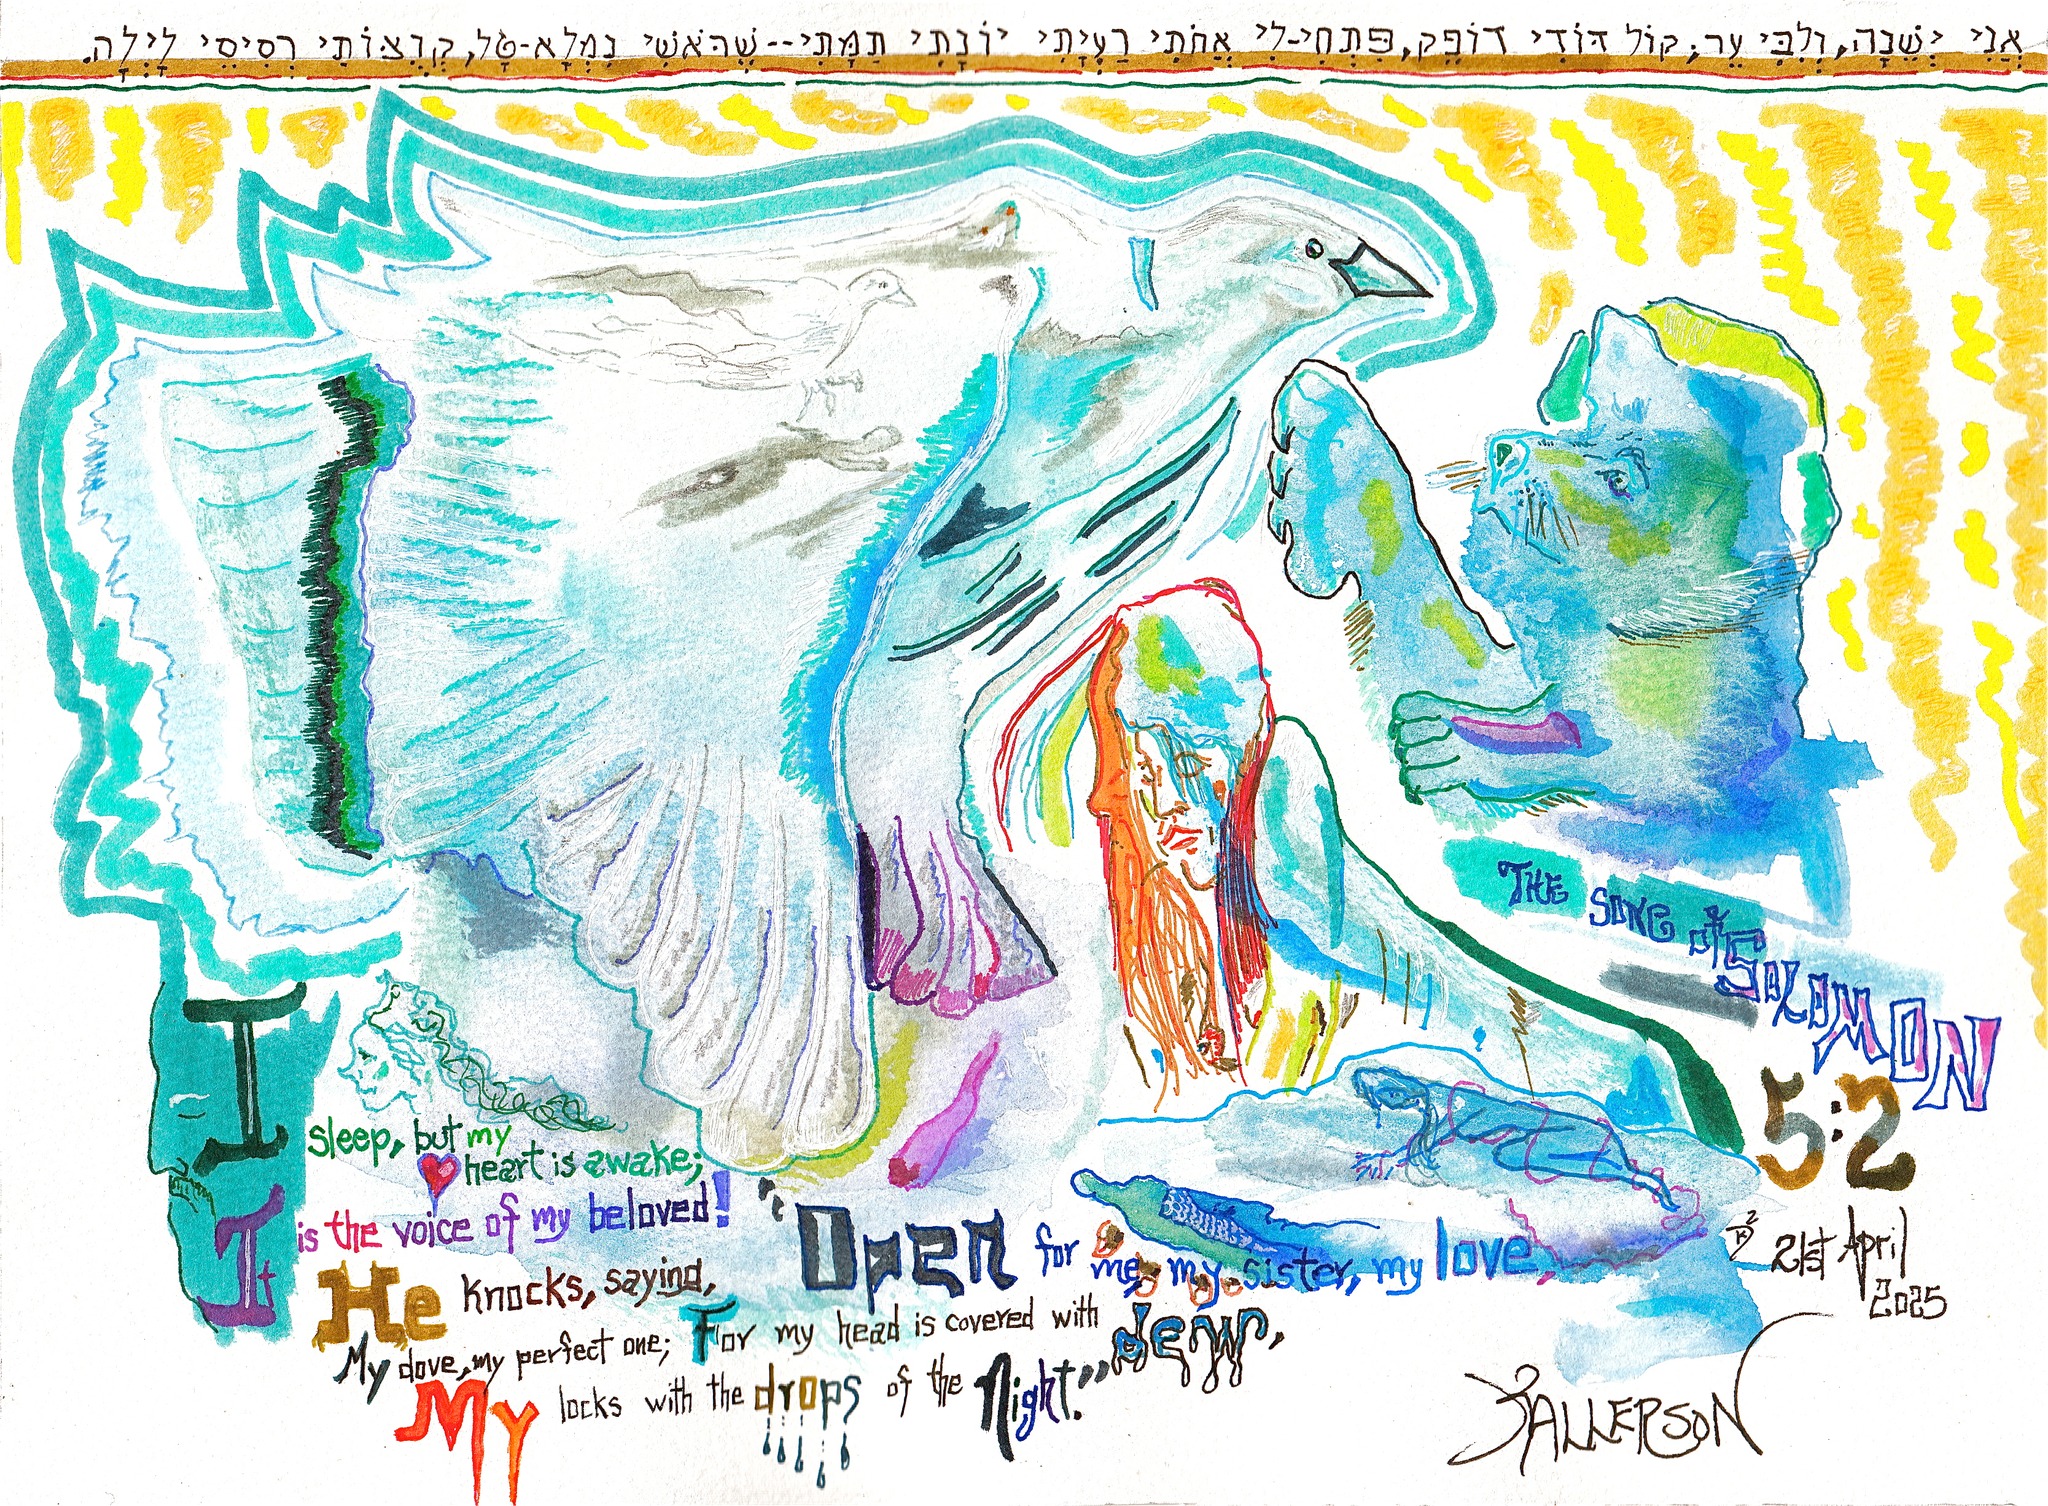 אֲנִי יְשֵׁנָה, וְלִבִּי עֵר; קוֹל דּוֹדִי דוֹפֵק, פִּתְחִי-לִי אֲחֹתִי רַעְיָתִי יוֹנָתִי תַמָּתִי--שֶׁרֹּאשִׁי נִמְלָא-טָל, קְוֻצּוֹתַי רְסִיסֵי לָיְלָה.
THE SONG of SOLOMON
5:2
I sleep, but my
heart is awake;
It is the voice of my beloved!
He knocks, saying,
"Open for me, my sister, my love,
My dove, my perfect one; For my head is covered with dew,
My locks with the drops of the Night."
21st April
2025
JALLERSON